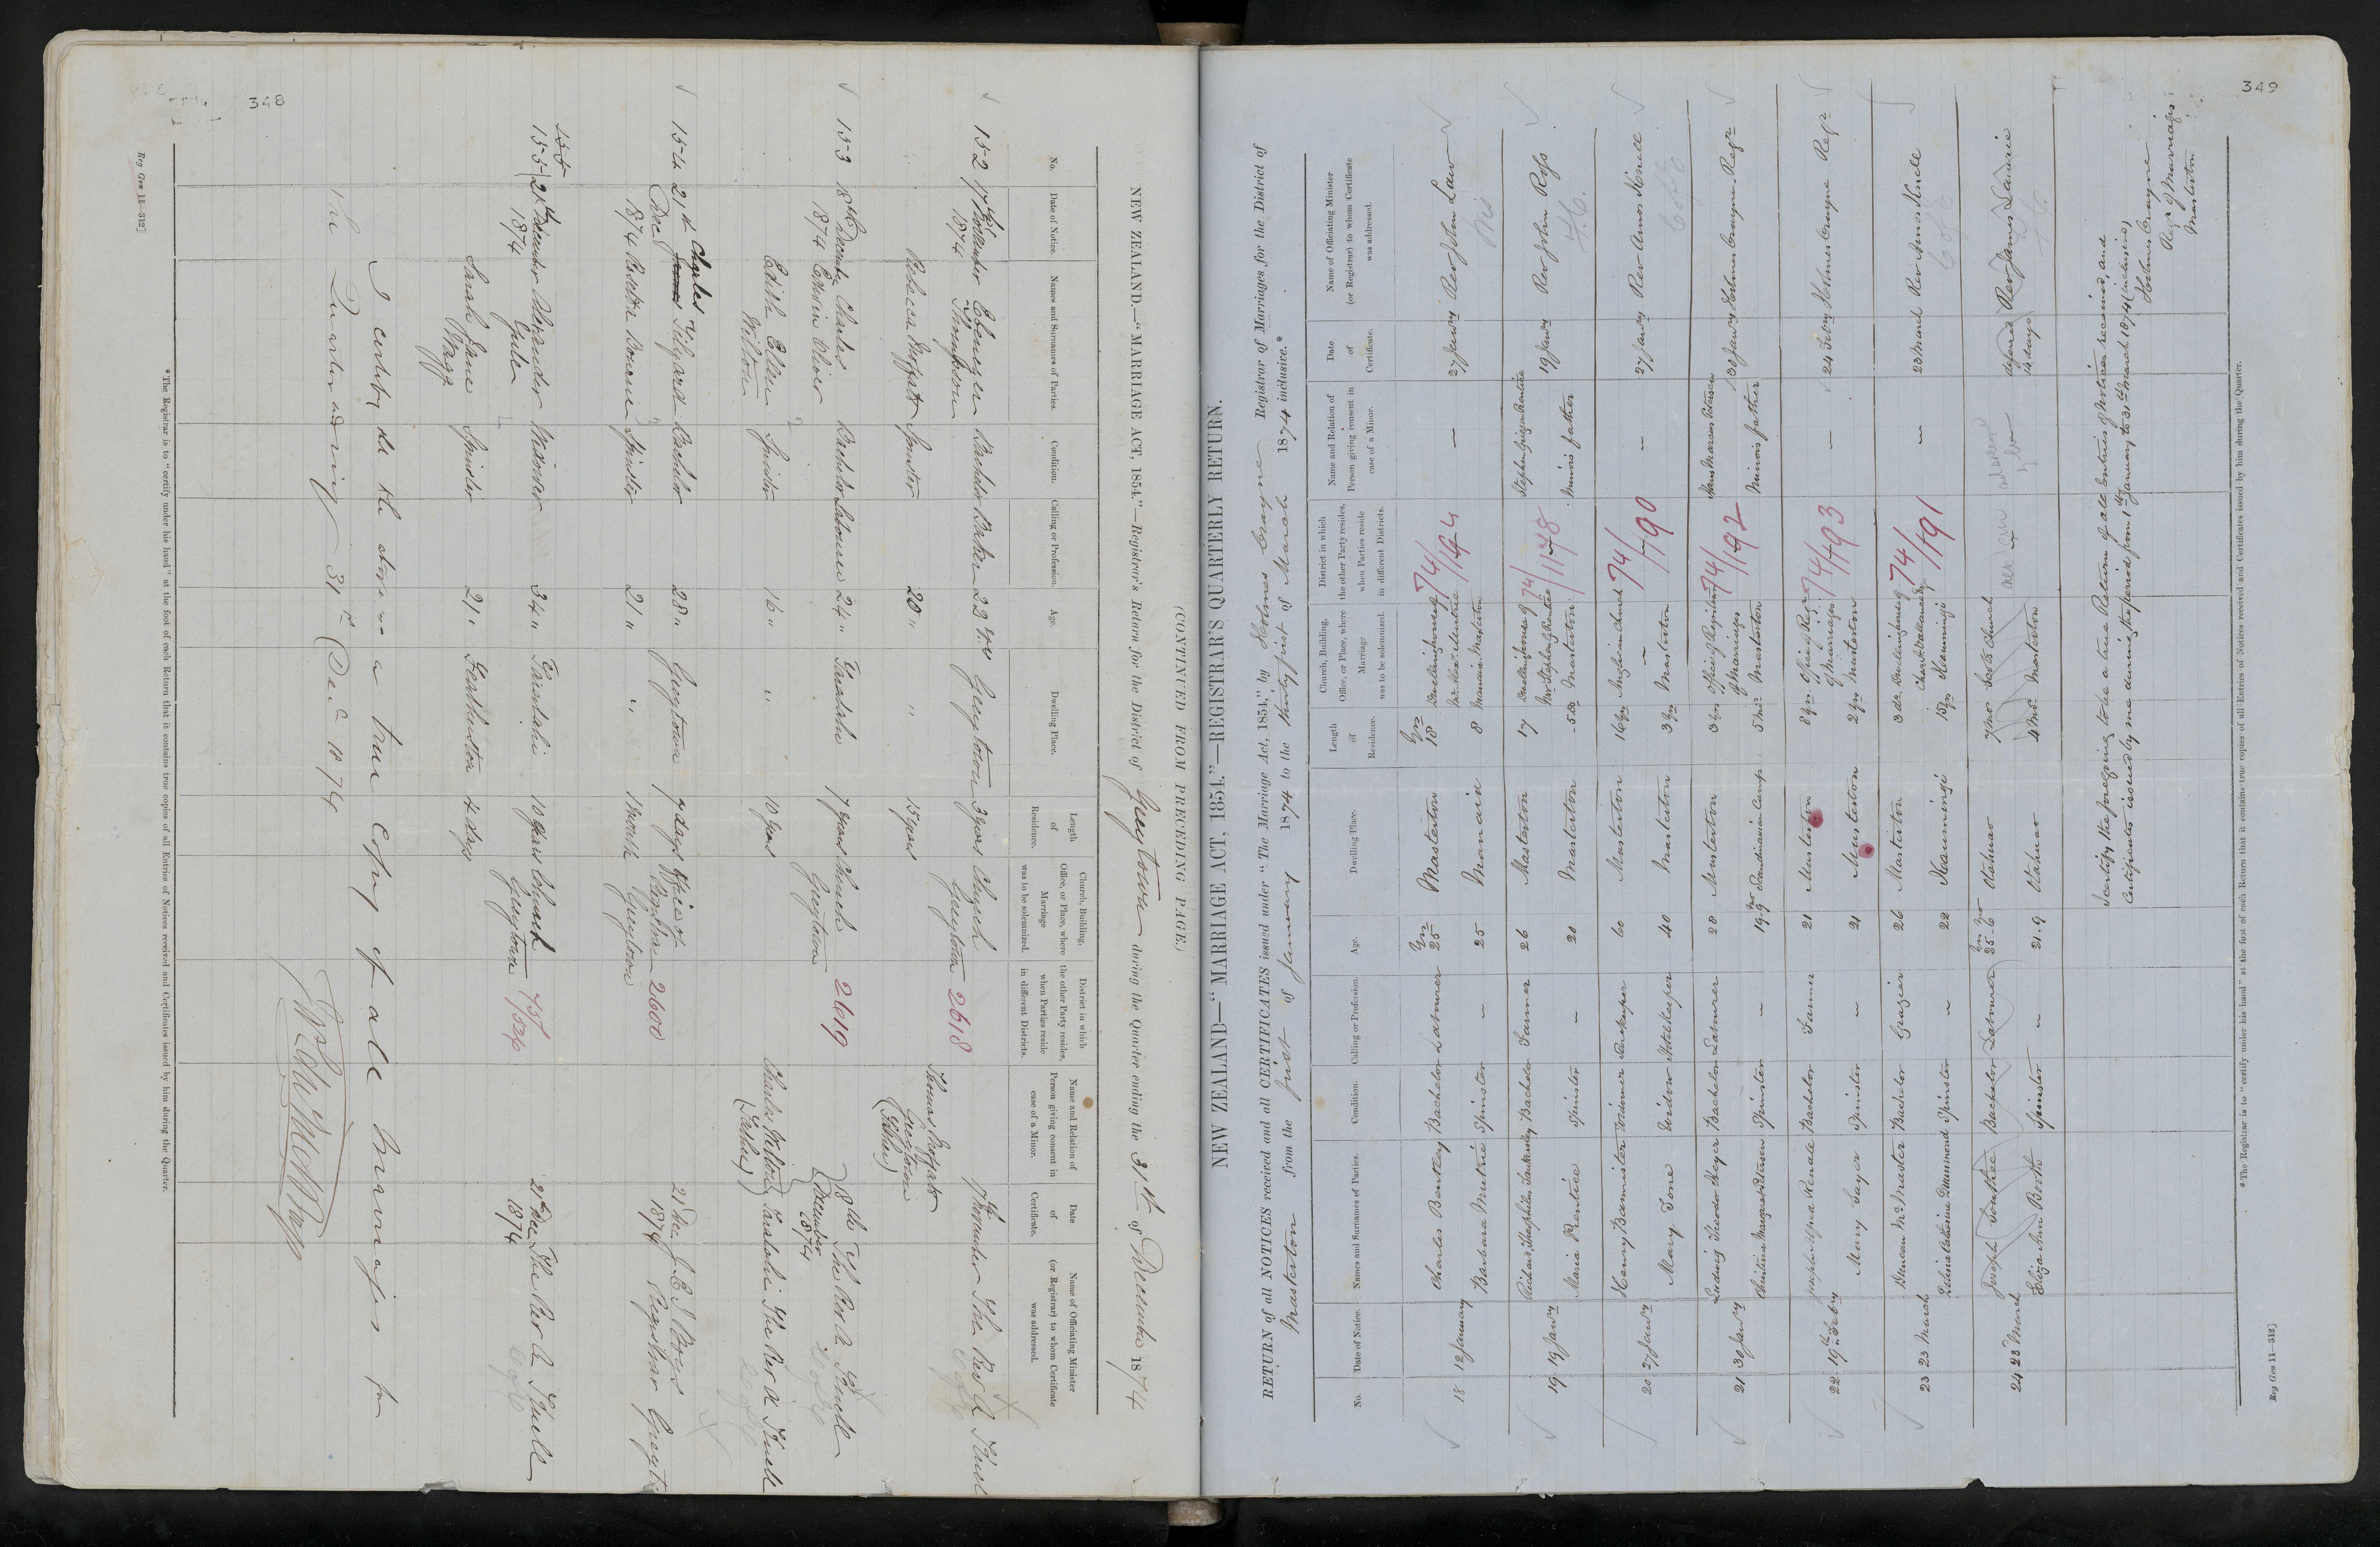 348
(CONTINUED FROM PRECEDING PAGE.)
NEW ZEALAND.—"MARRIAGE ACT, 1854."—Registrar's Return for the District of Greytown during the Quarter ending the 31st of December 1874
No. Date of Notice. Names and Surnames of Parties. Condition. Calling or Profession. Age. Dwelling Place. Length of Residence. Church, Building, Office, or Place, where Marriage was to be solemnized. District in which the other Party resides, when Parties reside in different Districts. Name and Relation of Person giving consent in case of a Minor. Date of Certificate. Name of Officiating Minister (or Registrar) to whom Certificate was addressed.
152 17th November 1874 Ebenezer Thompson Bachelor Baker 22 yrs Greytown 3 years Church Greytown 2618 17th November The Rev A Knell
Rebecca Spinster 20 " " 15 years Thomas Greytown (Father)
153 18th December 1874 Charles Edwin Oliver Bachelor Labourer 24 " Taratahi 7 years Church Greytown 2619 18th December 1874 The Rev A Knell
Edith Ellen Wilton Spinster 16 " " 10 years Charles Wilton Taratahi (Father) The Rev A Knell
154 21st Dec 1874 Charles Tilyard Bachelor 28 " Greytown 7 days Office of Registrar Greytown 2600 21st Dec 1874 Registrar Greyt
Spinster 21 " " 1 Month
155 21st December 1874 Alexander Yule Widower 34 " Taratahi 10 years Church Greytown 75/526 21st Dec 1874 The Rev A Knell
Sarah Jane Wagg Spinster 21 " Featherston 4 days
I certify the above is a true Copy of all Marriages for
the Quarter ending 31st Dec 1874
* The Registrar is to "certify under his hand" at the foot of each Return that it contains true copies of all Entries of Notices received and Certificates issued by him during the Quarter.
Reg Gen 11—312]
349
NEW ZEALAND—"MARRIAGE ACT, 1854."—REGISTRAR'S QUARTERLY RETURN.
RETURN of all NOTICES received and all CERTIFICATES issued under "The Marriage Act, 1854," by Holmes Crayne Registrar of Marriages for the District of
Masterton from the first of January 1874 to the thirty first of March 1874 inclusive.*
No. Date of Notice. Names and Surnames of Parties. Condition. Calling or Profession. Age. Dwelling Place. Length of Residence. Church, Building, Office, or Place, where Marriage was to be solemnized. District in which the other Party resides, when Parties reside in different Districts. Name and Relation of Person giving consent in case of a Minor. Date of Certificate. Name of Officiating Minister (or Registrar) to whom Certificate was addressed.
18 12 January Charles Bentley Bachelor Labourer Yrs 25 Masterton Yrs 18 Dwellinghouse of 74/194 — 27 Janry Rev John Law
Barbara Mutrie Spinster — 25 Manaia 8 Manaia Masterton
19 19 Janry Bachelor Farmer 26 Masterton 17 Dwellinghouse of Mr Stephen Prentice 74/1178 Stephen Prentice 19 Janry Rev John Ross
Maria Prentice Spinster — 20 Masterton Masterton Minors father
20 27 Janry Henry Bannister Widower Innkeeper 60 Masterton 16 yrs Anglican Church 74/190 — 27 Janry Rev Amos Knell
Mary Tone Widow Hotelkeeper 40 Masterton 3 yrs Masterton
21 30 Janry Ludwig Theodor Heyer Bachelor Labourer 28 Masterton 3 yrs Office of Registrar of Marriages 74/192 Hans Petersen 30 Janry Holmes Crayne Regr
Margaret Petersen Spinster — 19.9 Scandinavian Camp 5 Mos Masterton Minors father
22 19th Febry Joseph Kendle Bachelor Farmer 21 Masterton 8 yrs Office of Regr of Marriages 74/193 — 24 Febry Holmes Crayne Regr
Mary Sayer Spinster — 21 Masterton 2 yrs Masterton
23 23 March Duncan McMaster Bachelor Grazier 26 Masterton 3 ds Dwellinghouse of 74/191 — 23 March Rev Amos Knell
Catherine Drummond Spinster — 22 15 yrs
24 23 March Joseph Bachelor Labourer 25.6 7 Mos Scots Church deferred 14 days Rev James Laurie
Eliza Ann Booth Spinster — 21.9 4 Mos Masterton
I certify the foregoing to be a true Return of all Entries of Notices received, and
Certificates issued by me during the period from 1st January to 31st March 1874 (inclusive)
Holmes Crayne
Regr of Marriages
Masterton
* The Registrar is to "certify under his hand" at the foot of each Return that it contains true copies of all Entries of Notices received and Certificates issued by him during the Quarter.
Reg Gen 11—312]